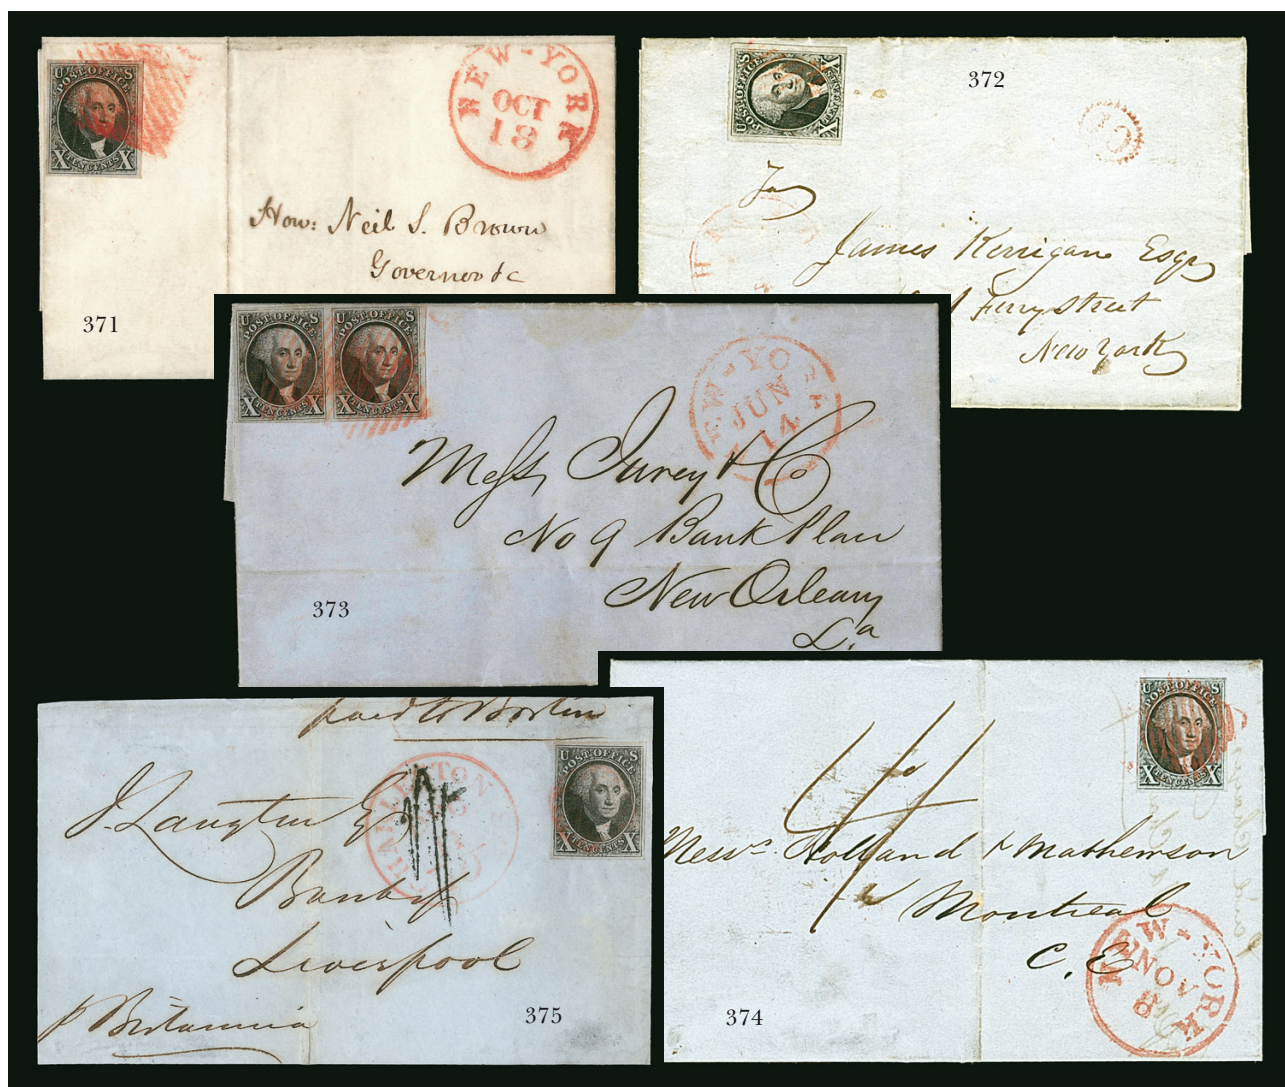 U S
POST OFFICE
X TEN CENTS X
NEW-YORK
OCT
18
Hon: Neil S. Brown
Governor &c
371
U S
POST OFFICE
X TEN CENTS X
372
10
To
James Kerrigan Esqr
Ferry street
New York
U S
POST OFFICE
X TEN CENTS X
U S
POST OFFICE
X TEN CENTS X
NEW-YORK
JUN
14
Messrs Jurey & Co
No 9 Bank Place
New Orleans
La
373
paid to Boston
U S
POST OFFICE
X TEN CENTS X
CHARLESTON
J. Langton Esq
Bank
Liverpool
p Britannia
375
U S
POST OFFICE
X TEN CENTS X
Messrs Holland & Mathewson
Montreal
C. E
NEW-YORK
NOV
8
374